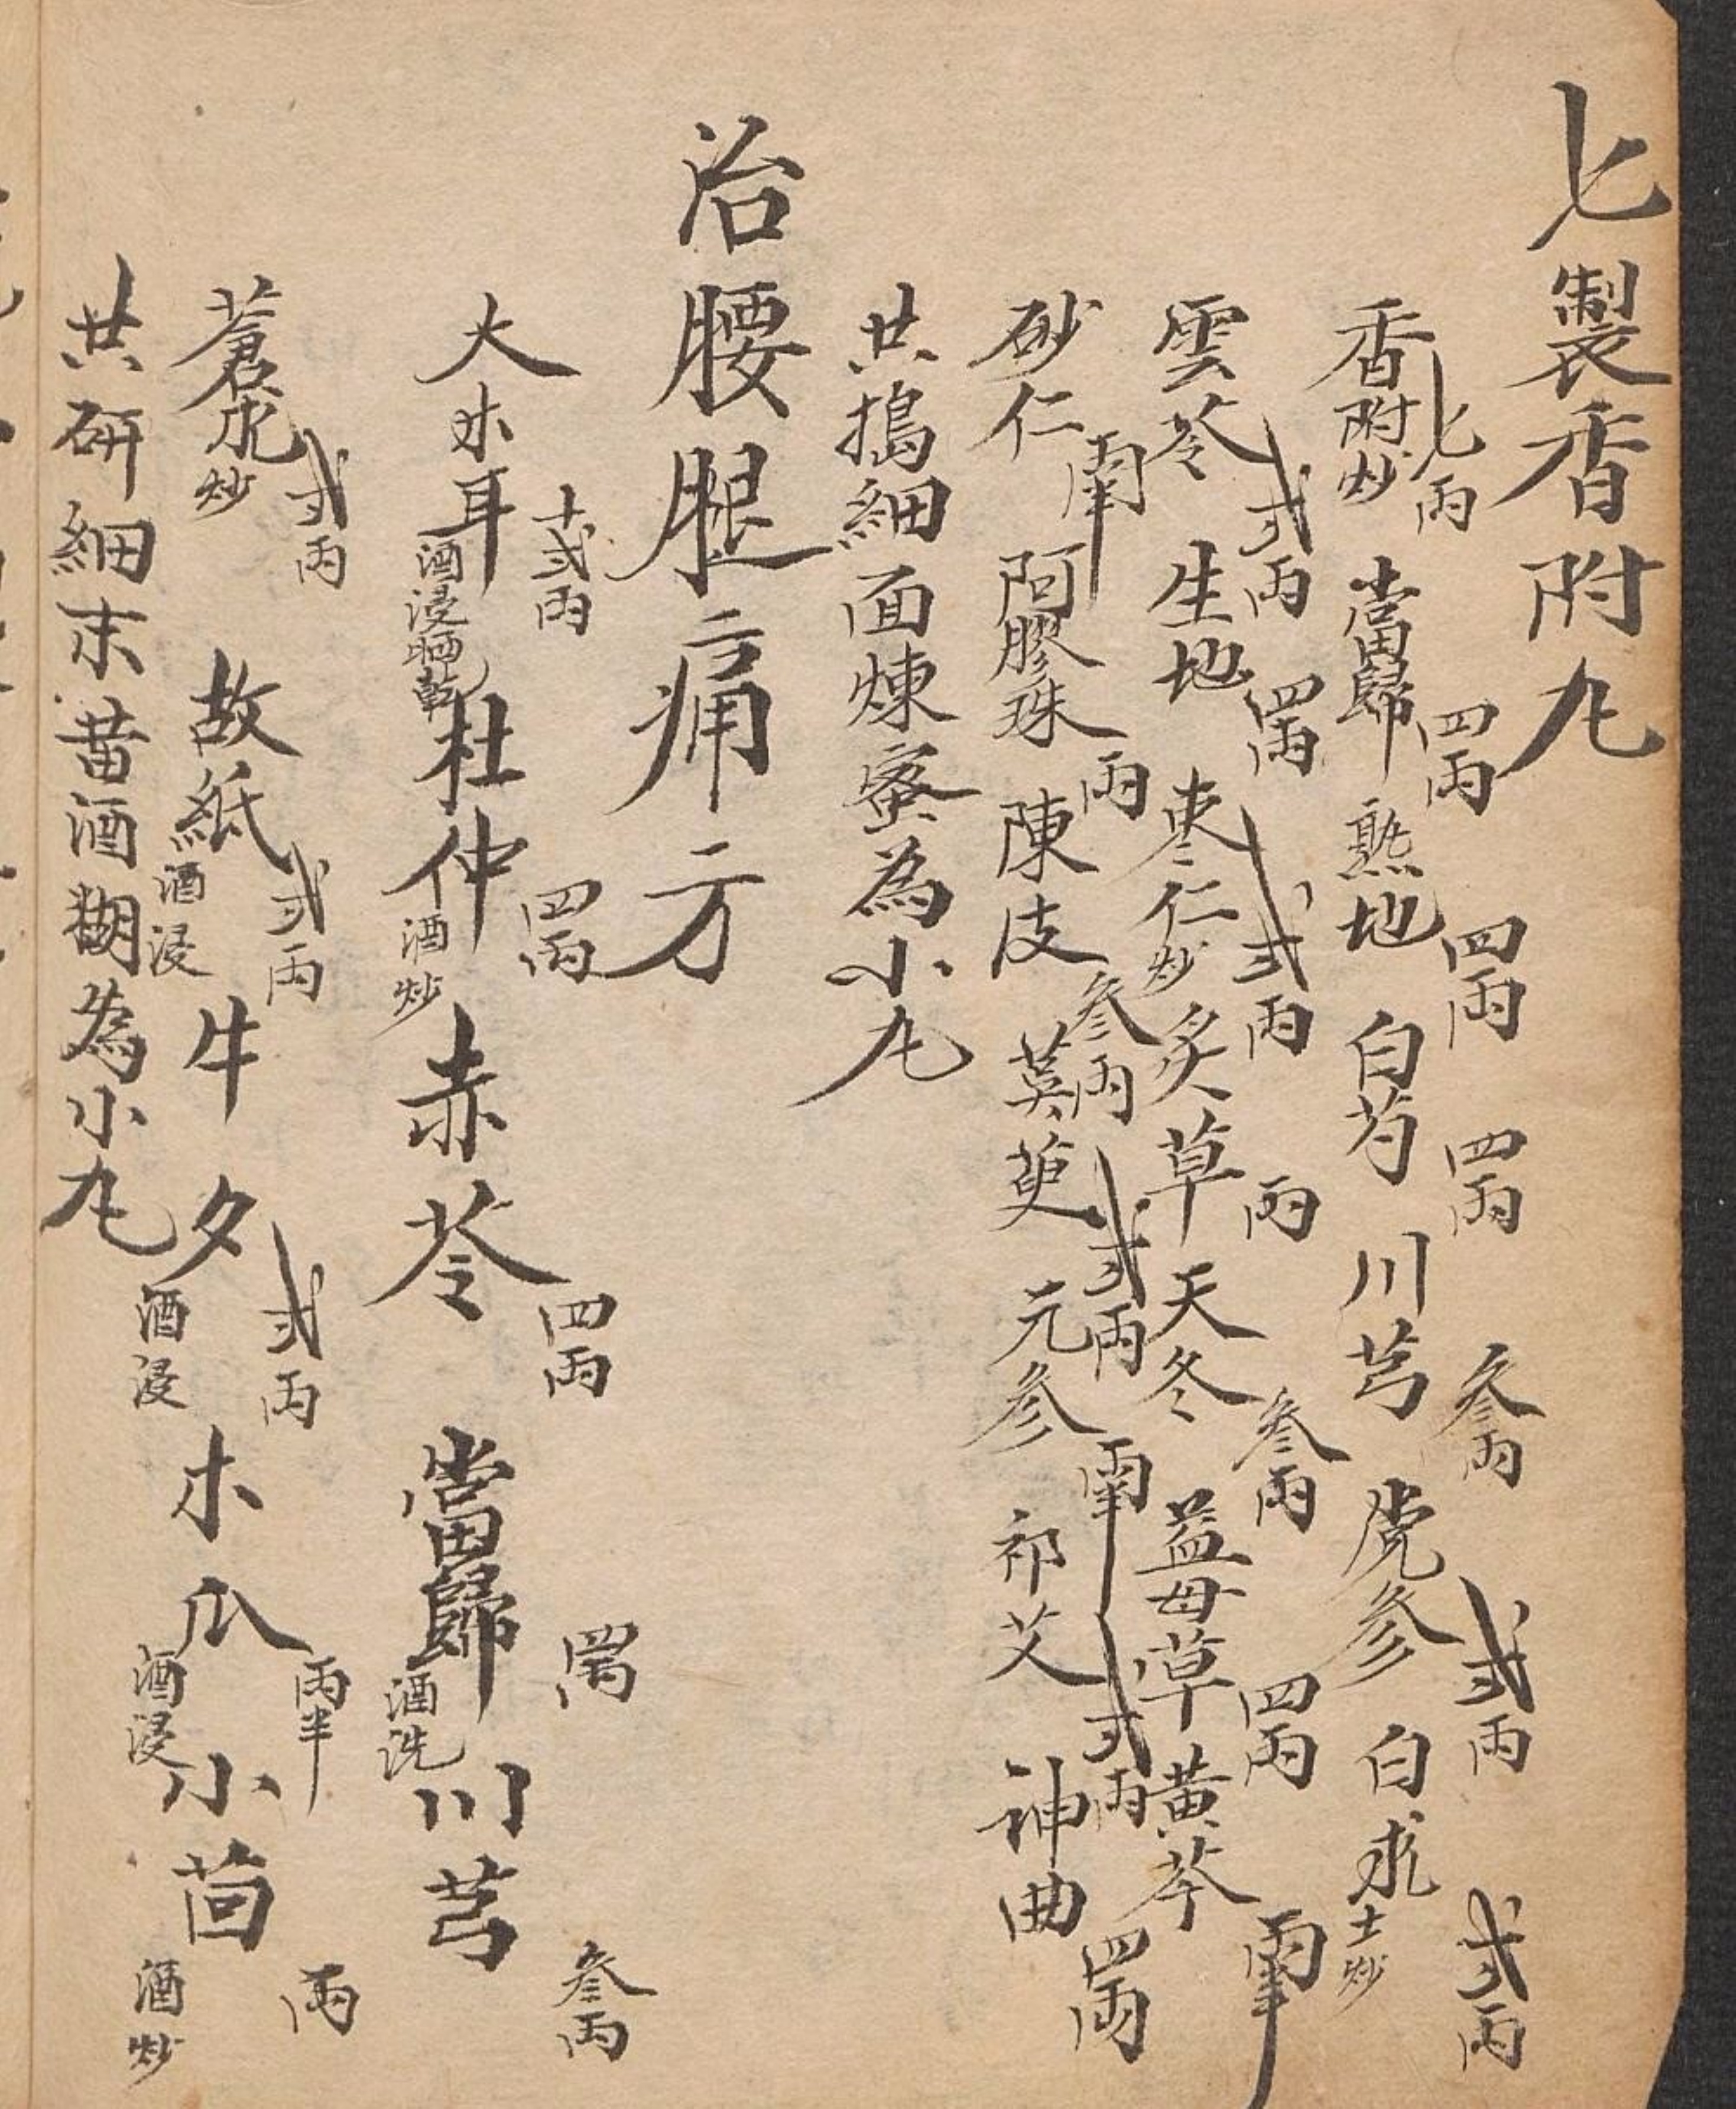 七製香附丸
香附炒七兩 當歸四兩 熟地四兩 白芍四兩 川芎叁兩 党參弍兩 白朮土炒弍兩
雲苓弍兩 生地四兩 枣仁炒弍兩 炙草兩 天冬叁兩 益母草四兩 黃芩兩半
砂仁兩半 阿膠珠兩 陳皮叁兩 萸萸弍兩 元參兩半 祁艾弍兩 神曲四兩
共搗細面煉蜜為小丸
治腰腿痛方
大木耳酒浸晒乾十弍兩 杜仲酒炒四兩 赤苓四兩 當歸酒洗四兩 川芎叁兩
蒼朮炒弍兩 故紙酒浸弍兩 牛夕酒浸弍兩 木瓜酒浸兩半 小茴酒炒兩
共研細末黄酒糊為小丸